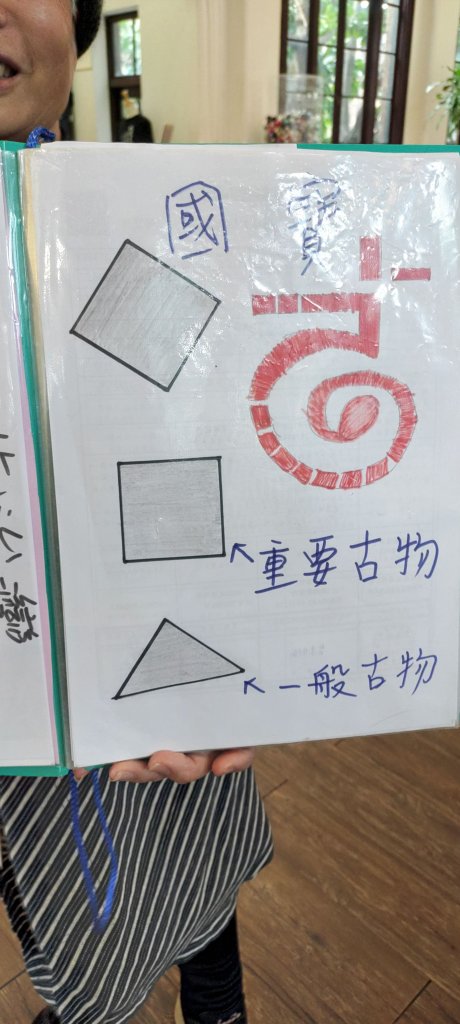 國寶
重要古物
一般古物